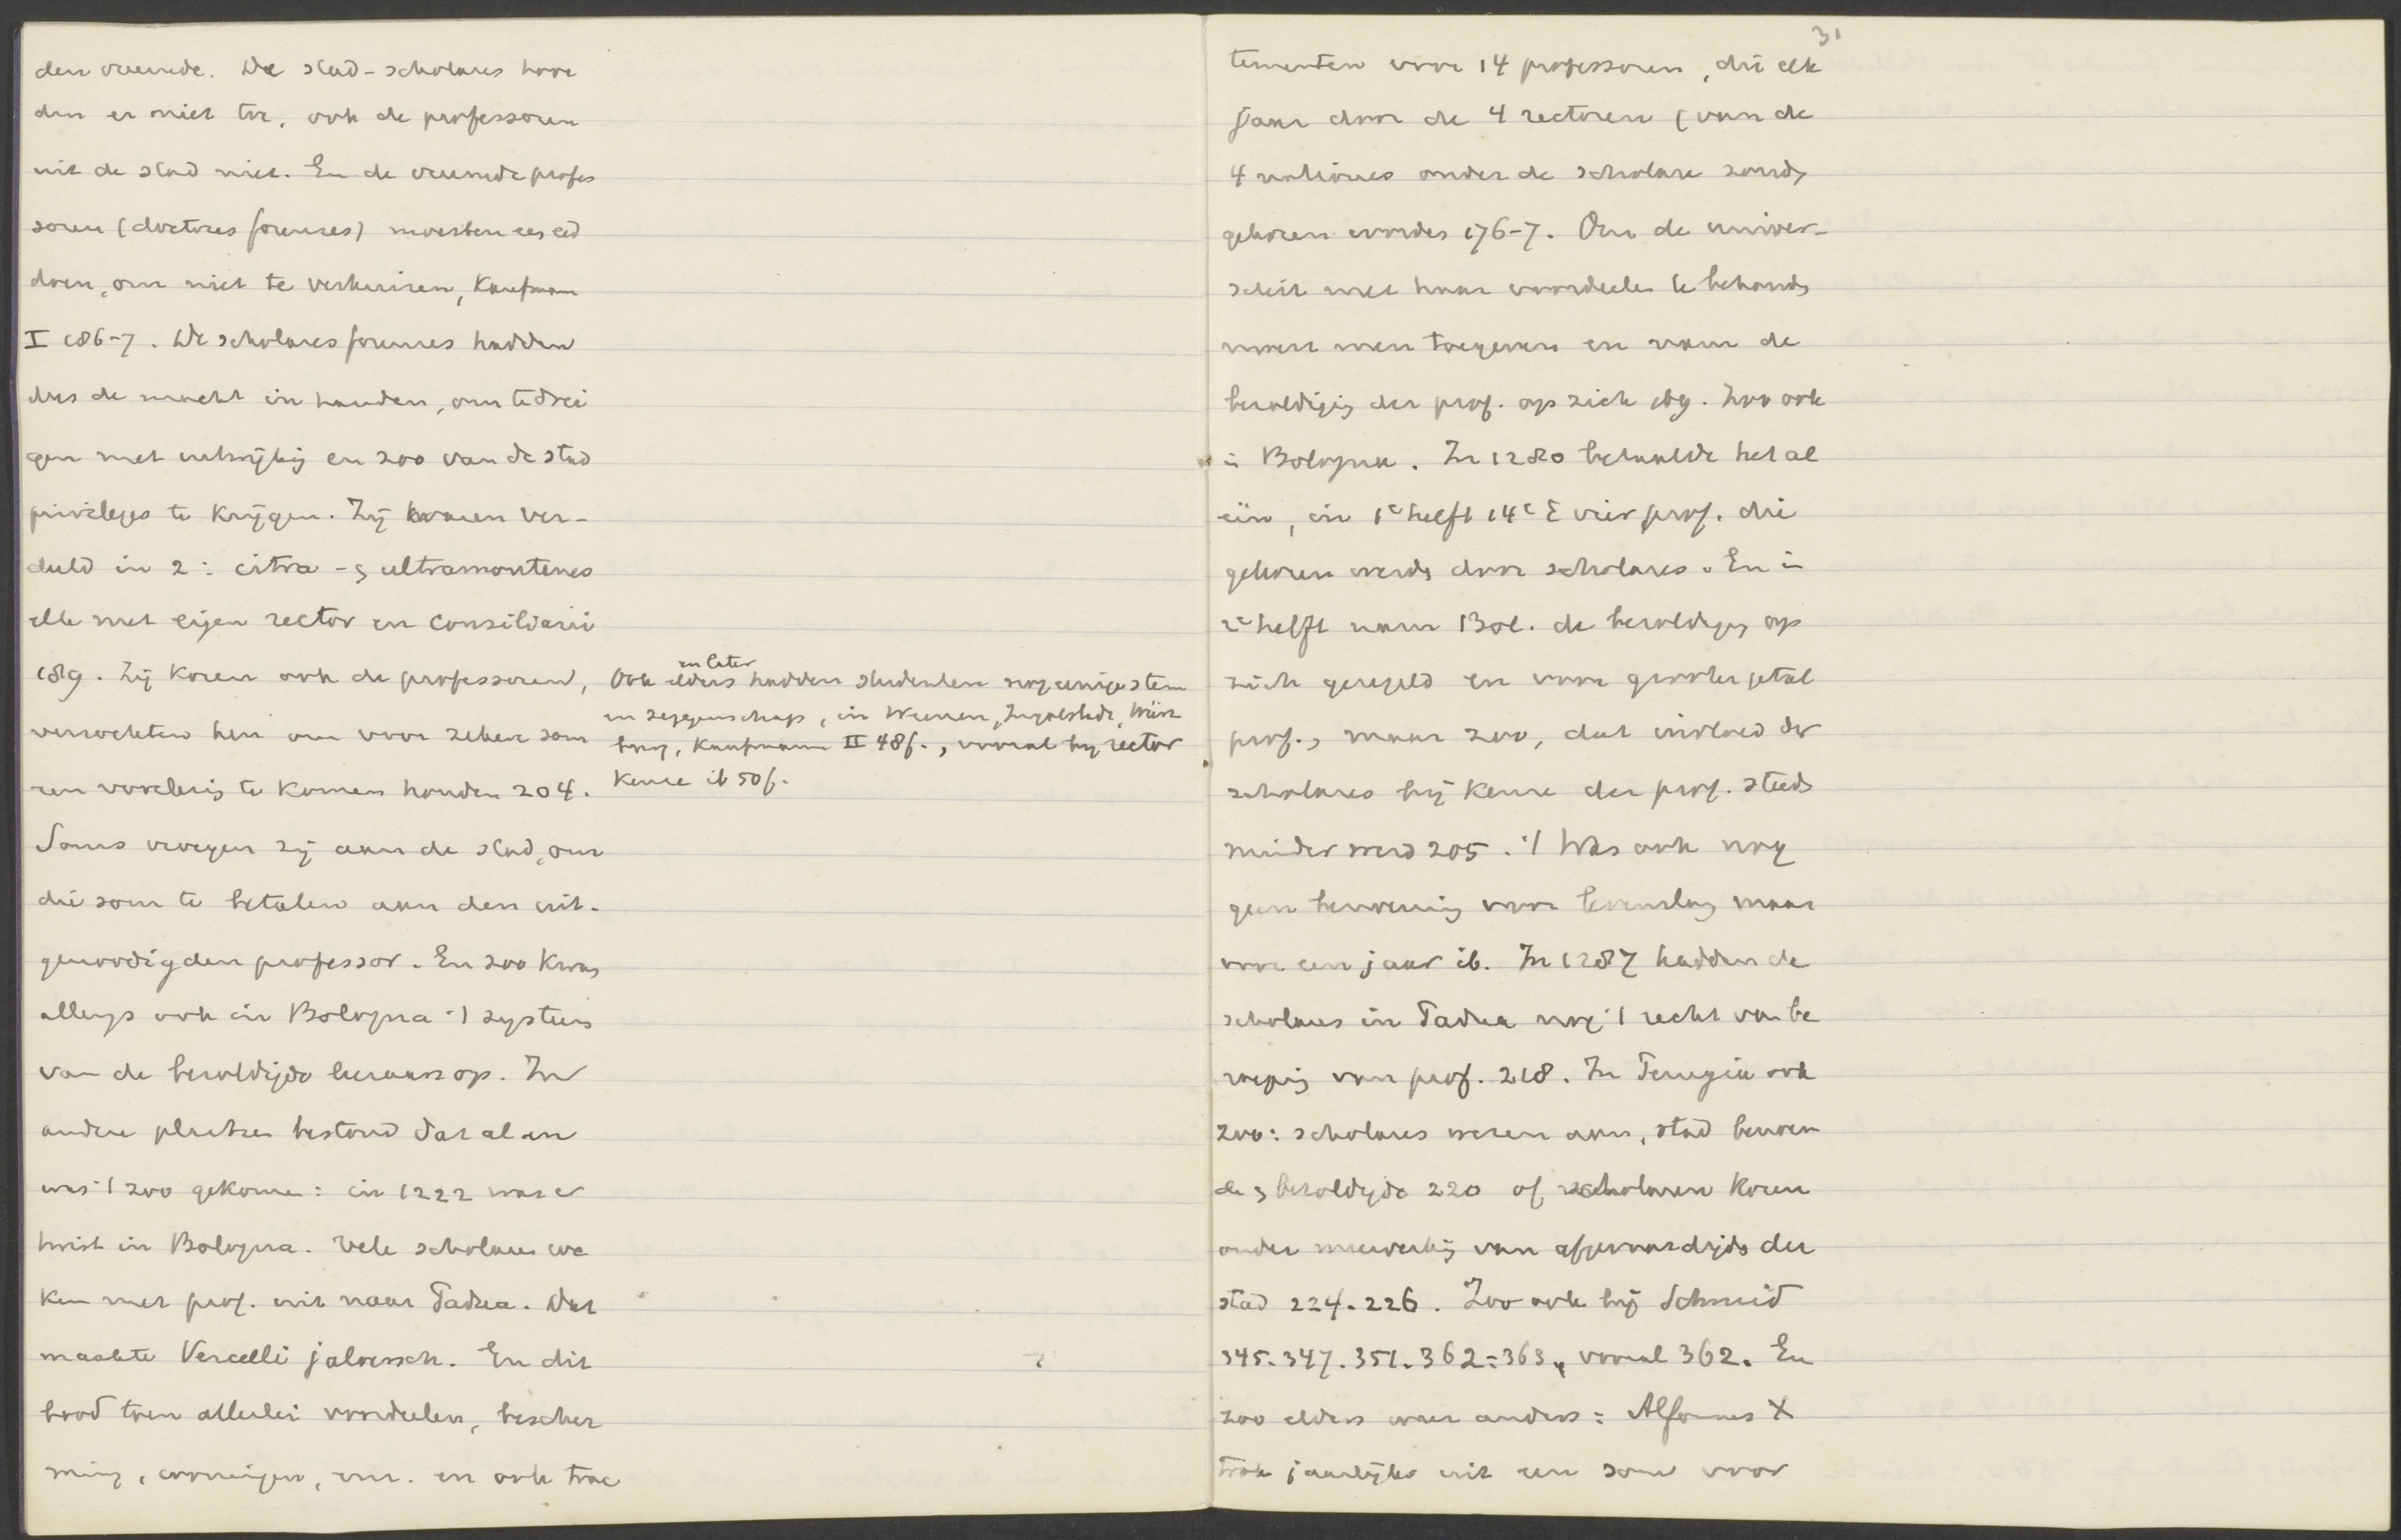 den vreemde. De stad-scholares hoor
den er niet toe, ook de professoren
uit de stad niet. En de vreemde profes
soren (doctores forenses) moesten een eed
doen, om niet te verhuizen, Kaufmann
I 186-7. De scholares forenses hadden
dus de macht in handen, om te drei
gen met uitwijking en zoo van de stad
privileges te krijgen. Zij waren ver-
deeld in 2: citra- & ultramontanes
elk met eigen rector en consiliarii
189. Zij kozen ook de professoren,
verzochten hen om voor zekere som
een voorlezing te komen houden 204.
Soms vroegen zij aan de stad, om
die som te betalen aan den uit-
genoodigden professor. En zoo kwam
allengs ook in Bologna 't systeem
van de bezoldigde leeraars op. In
andere plaatsen bestond dat al en
was 't zoo gekomen: in 1222 was er
twist in Bologna. Vele scholares we
ken met prof. uit naar Padua. Dat
maakte Vercelli jaloersch. En dit
bood toen allerlei voordeelen, bescher
ming, woningen, enz. en ook trac
Ook elders en later hadden studenten nog eenige stem
en zeggenschap, in Weenen, Ingolstadt, Würz
burg, Kaufmann II 48f., vooral bij rector
keuze ib 50f.
31
tementen voor 14 professoren, die elk
jaar door de 4 rectoren (van de
4 nationes onder de scholare zouden
gekozen worden 176-7. Om de univer-
siteit met haar voordeelen te behouden
moest men toegeven en nam de
bezoldiging der prof. op zich ibg. Zoo ook
in Bologna. In 1280 betaalde het al
één, in 1e helft 14e E vier prof. die
gekozen werden door scholares. En in
2e helft nam Bol. de bezoldiging op
zich geregeld en voor grooter getal
prof., maar zoo, dat invloed der
scholares bij keuze der prof. steeds
minder werd 205. 't Was ook nog
geen benoeming voor levenslang maar
voor een jaar ib. In 1287 hadden de
scholares in Padua nog 't recht van be
roeping van prof. 218. In Perugia ook
zoo: scholares wezen aan, stad benoem
de & bezoldigde 220 of scholaren kozen
onder medewerking van afgevaardigden der
stad 224. 226. Zoo ook bij Schmid
345. 347. 351. 362-363, vooral 362. En
zoo elders weer anders: Alfonsus X
trok jaarlijks uit een som voor